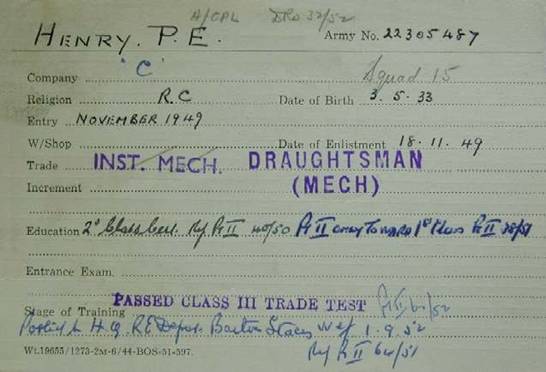 A/CPL DRO 32/52
HENRY. P. E. Army No. 22305487
Company 'C' Squad 15
Religion R.C Date of Birth 3. 5. 33
Entry NOVEMBER 1949
W/Shop Date of Enlistment 18. 11. 49
Trade INST. MECH. DRAUGHTSMAN
(MECH)
Increment
Education 2° Class Cert. Pt II 40/50 Pt II 1st Class Pt II 38/51
Entrance Exam.
PASSED CLASS III TRADE TEST Pt II 61/52
Stage of Training
Posted to H.Q. R.E Depot. Barton Stacey w.e.f. 1. 9. 52
Pt II 64/51
Wt.19655/1273-2M-6/44-BOS-51-597.